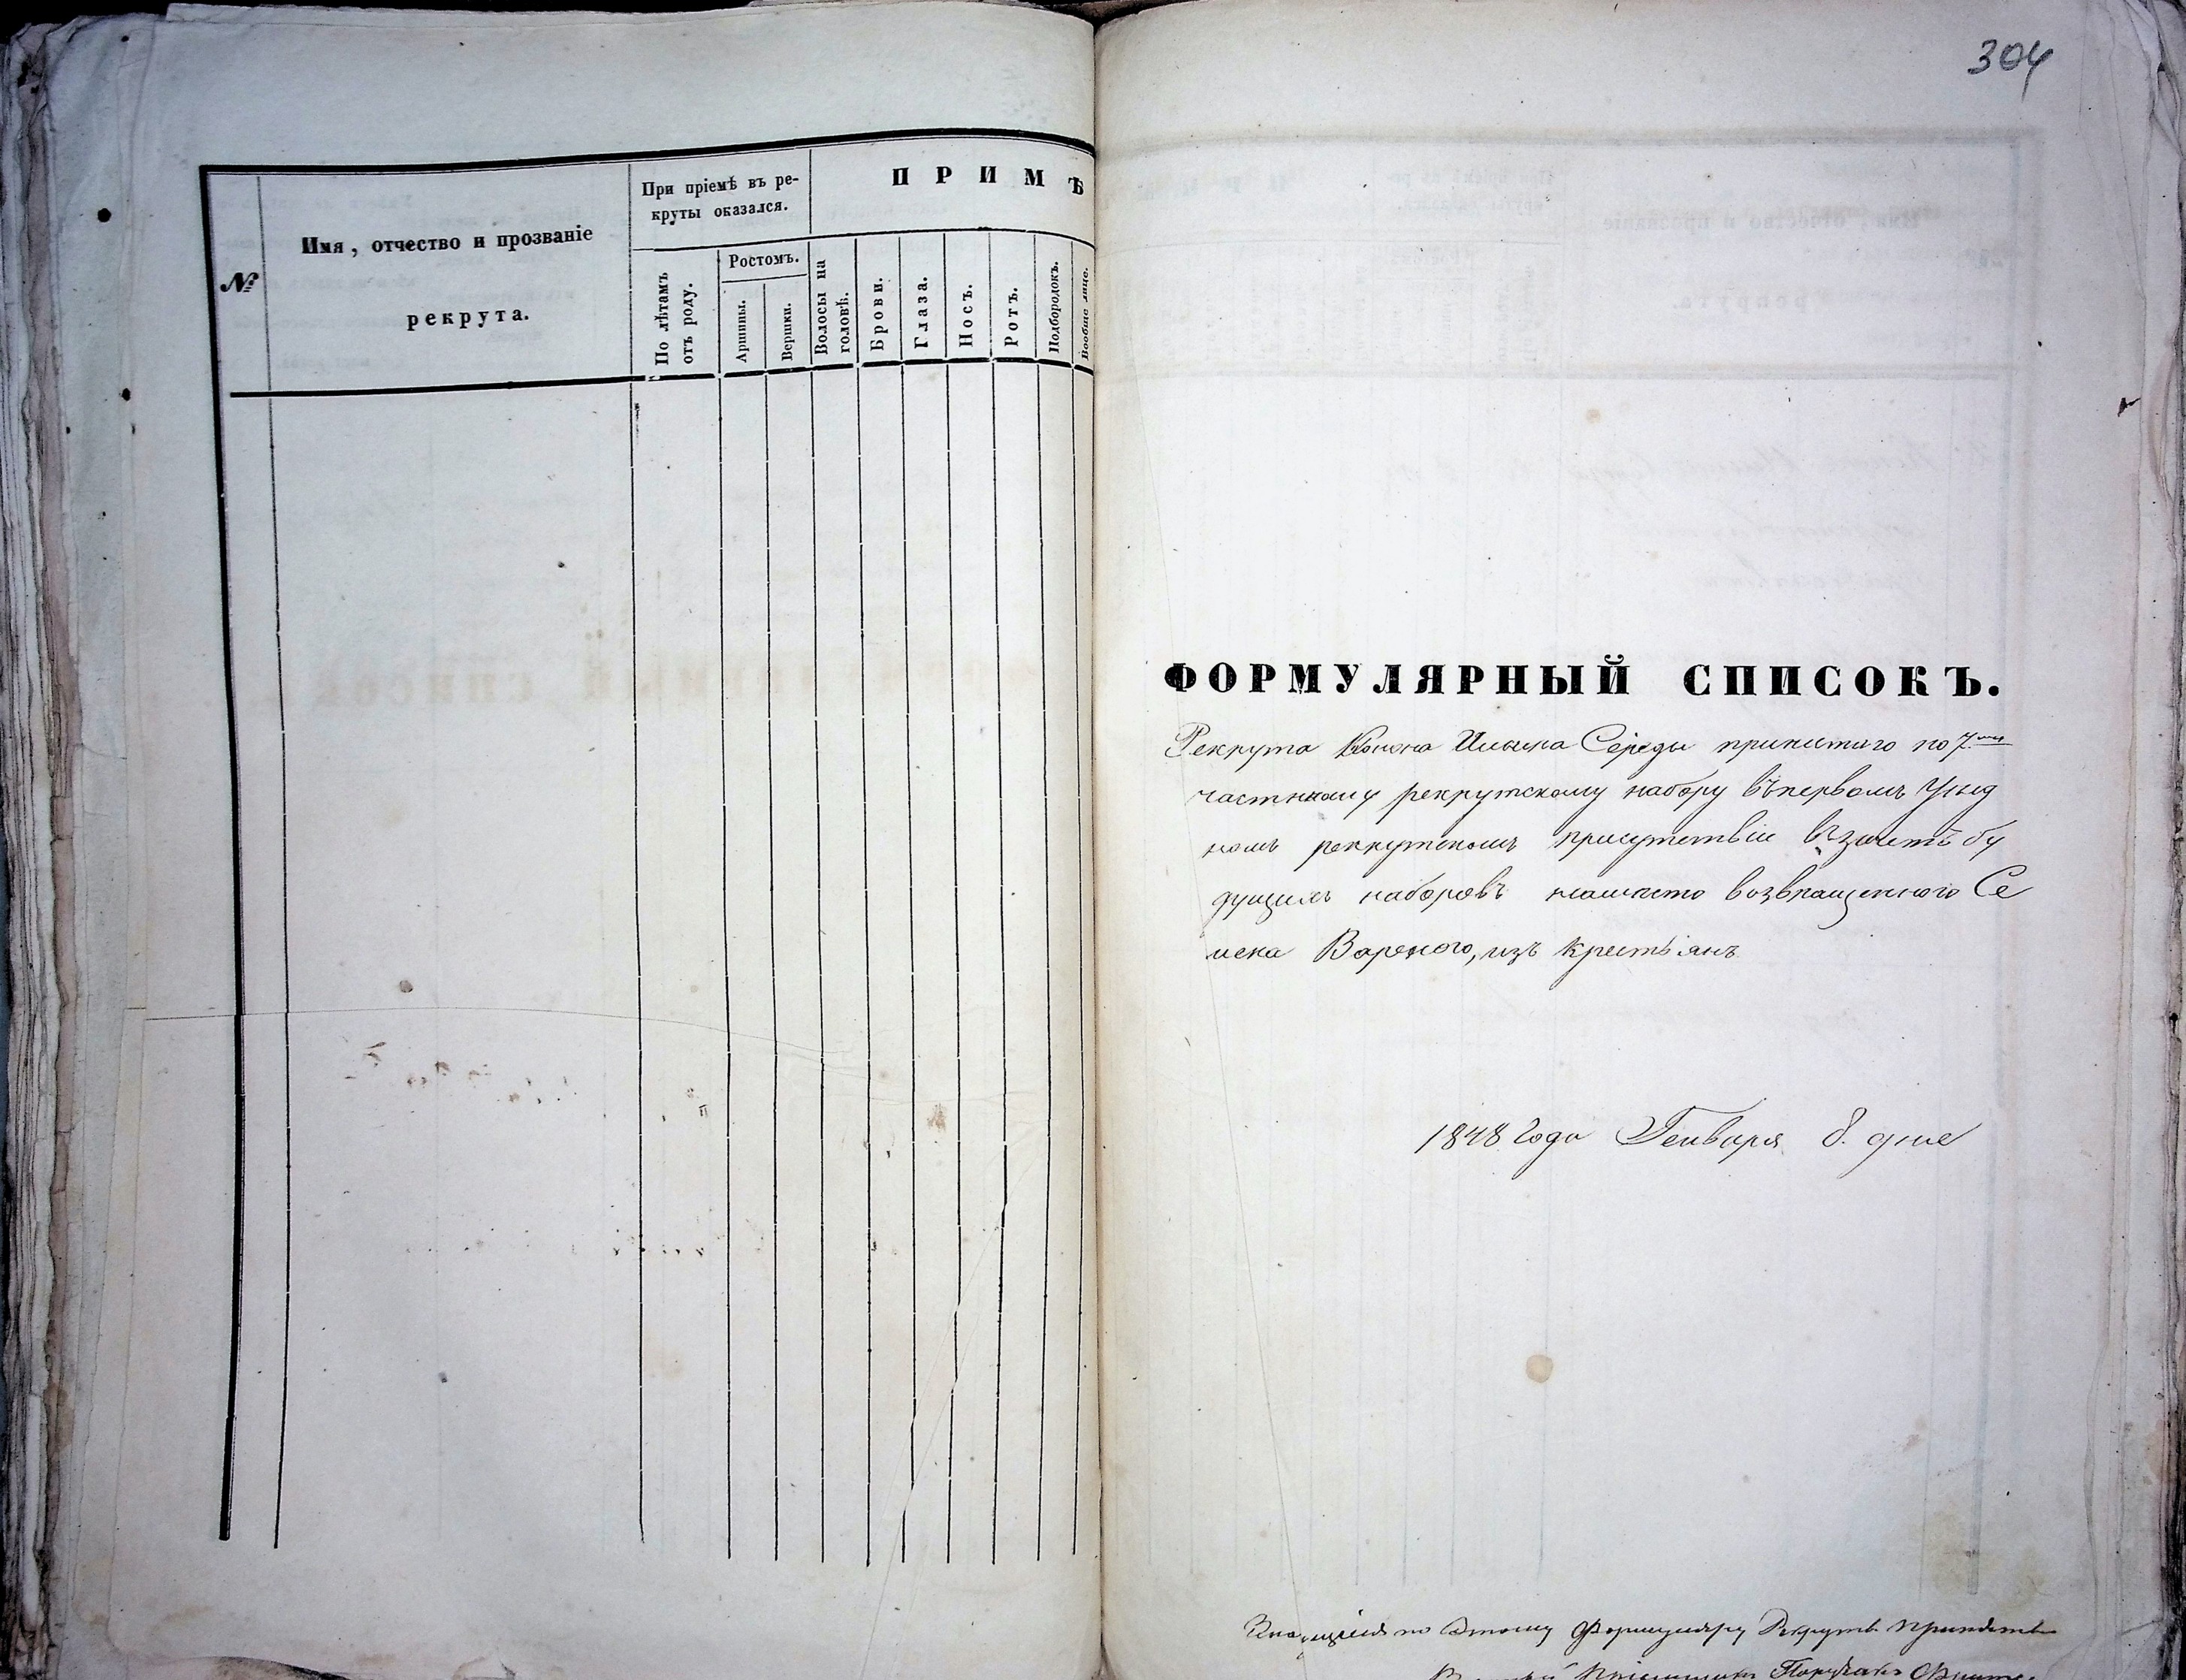 304
№
Имя, отчество и прозваніе
рекрута.
При пріемѣ въ ре-
круты оказался.
По лѣтамъ
отъ роду.
Ростомъ.
Аршины.
Вершки.
ПРИМѢ
Волосы на
головѣ.
Брови.
Глаза.
Носъ.
Ротъ.
Подбородокъ.
Вообще лице.
ФОРМУЛЯРНЫЙ СПИСОКЪ.
Рекрута Конона Середы принятаго по 7ми
частному рекрутскому набору въ первомъ Уѣзд
номъ рекрутскомъ присутствіи въ зачетъ бу
дущихъ наборовъ намѣсто возвращеннаго Се
мена Вареного, изъ крестьянъ
1848 Года Генваря 8. дня
по Этому Формуляру Рекрутъ принятъ
Поручикъ